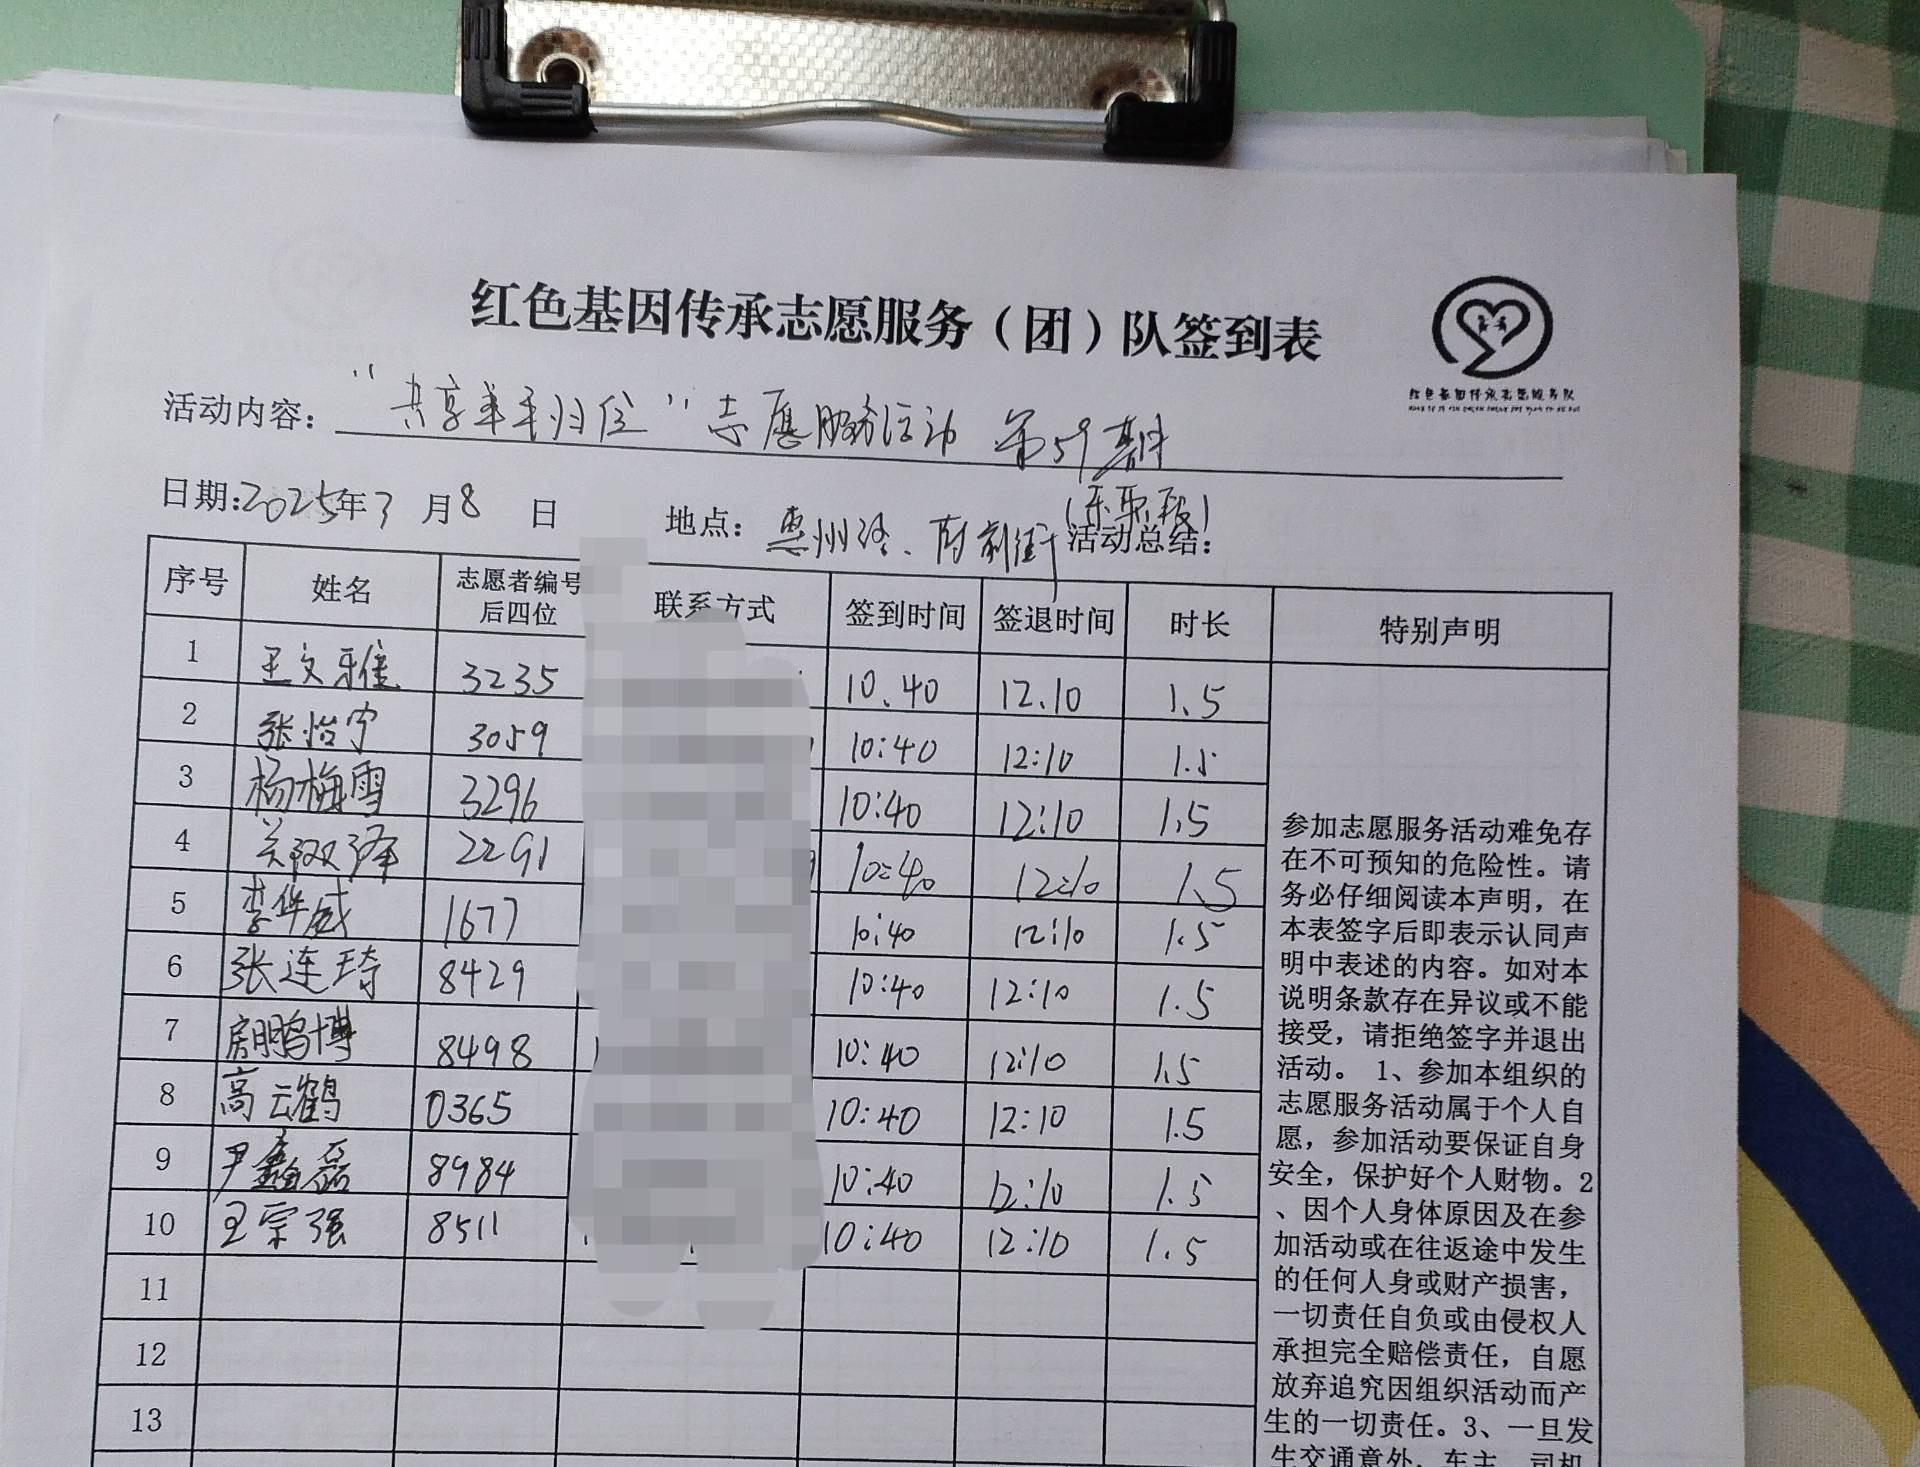 红色基因传承志愿服务（团）队签到表
红色基因传承志愿服务队
活动内容： “共享单车归位”志愿服务活动 第59期
日期:2025年3月8日 地点：惠州路、府前街（东职段） 活动总结：
序号 姓名 志愿者编号后四位 联系方式 签到时间 签退时间 时长 特别声明
1 王文雅 3235 10.40 12.10 1.5
2 张怡宁 3059 10:40 12:10 1.5
3 杨梅雪 3296 10:40 12:10 1.5
4 关双泽 2291 10:40 12:10 1.5
5 李华威 1677 10:40 12:10 1.5
6 张连琦 8429 10:40 12:10 1.5
7 房鹏博 8498 10:40 12:10 1.5
8 高云鹤 0365 10:40 12:10 1.5
9 尹鑫磊 8984 10:40 12:10 1.5
10 王宗强 8511 10:40 12:10 1.5
11
12
13
参加志愿服务活动难免存
在不可预知的危险性。请
务必仔细阅读本声明，在
本表签字后即表示认同声
明中表述的内容。如对本
说明条款存在异议或不能
接受，请拒绝签字并退出
活动。 1、参加本组织的
志愿服务活动属于个人自
愿，参加活动要保证自身
安全，保护好个人财物。2
、因个人身体原因及在参
加活动或在往返途中发生
的任何人身或财产损害，
一切责任自负或由侵权人
承担完全赔偿责任，自愿
放弃追究因组织活动而产
生的一切责任。3、一旦发
生交通意外，车主、司机